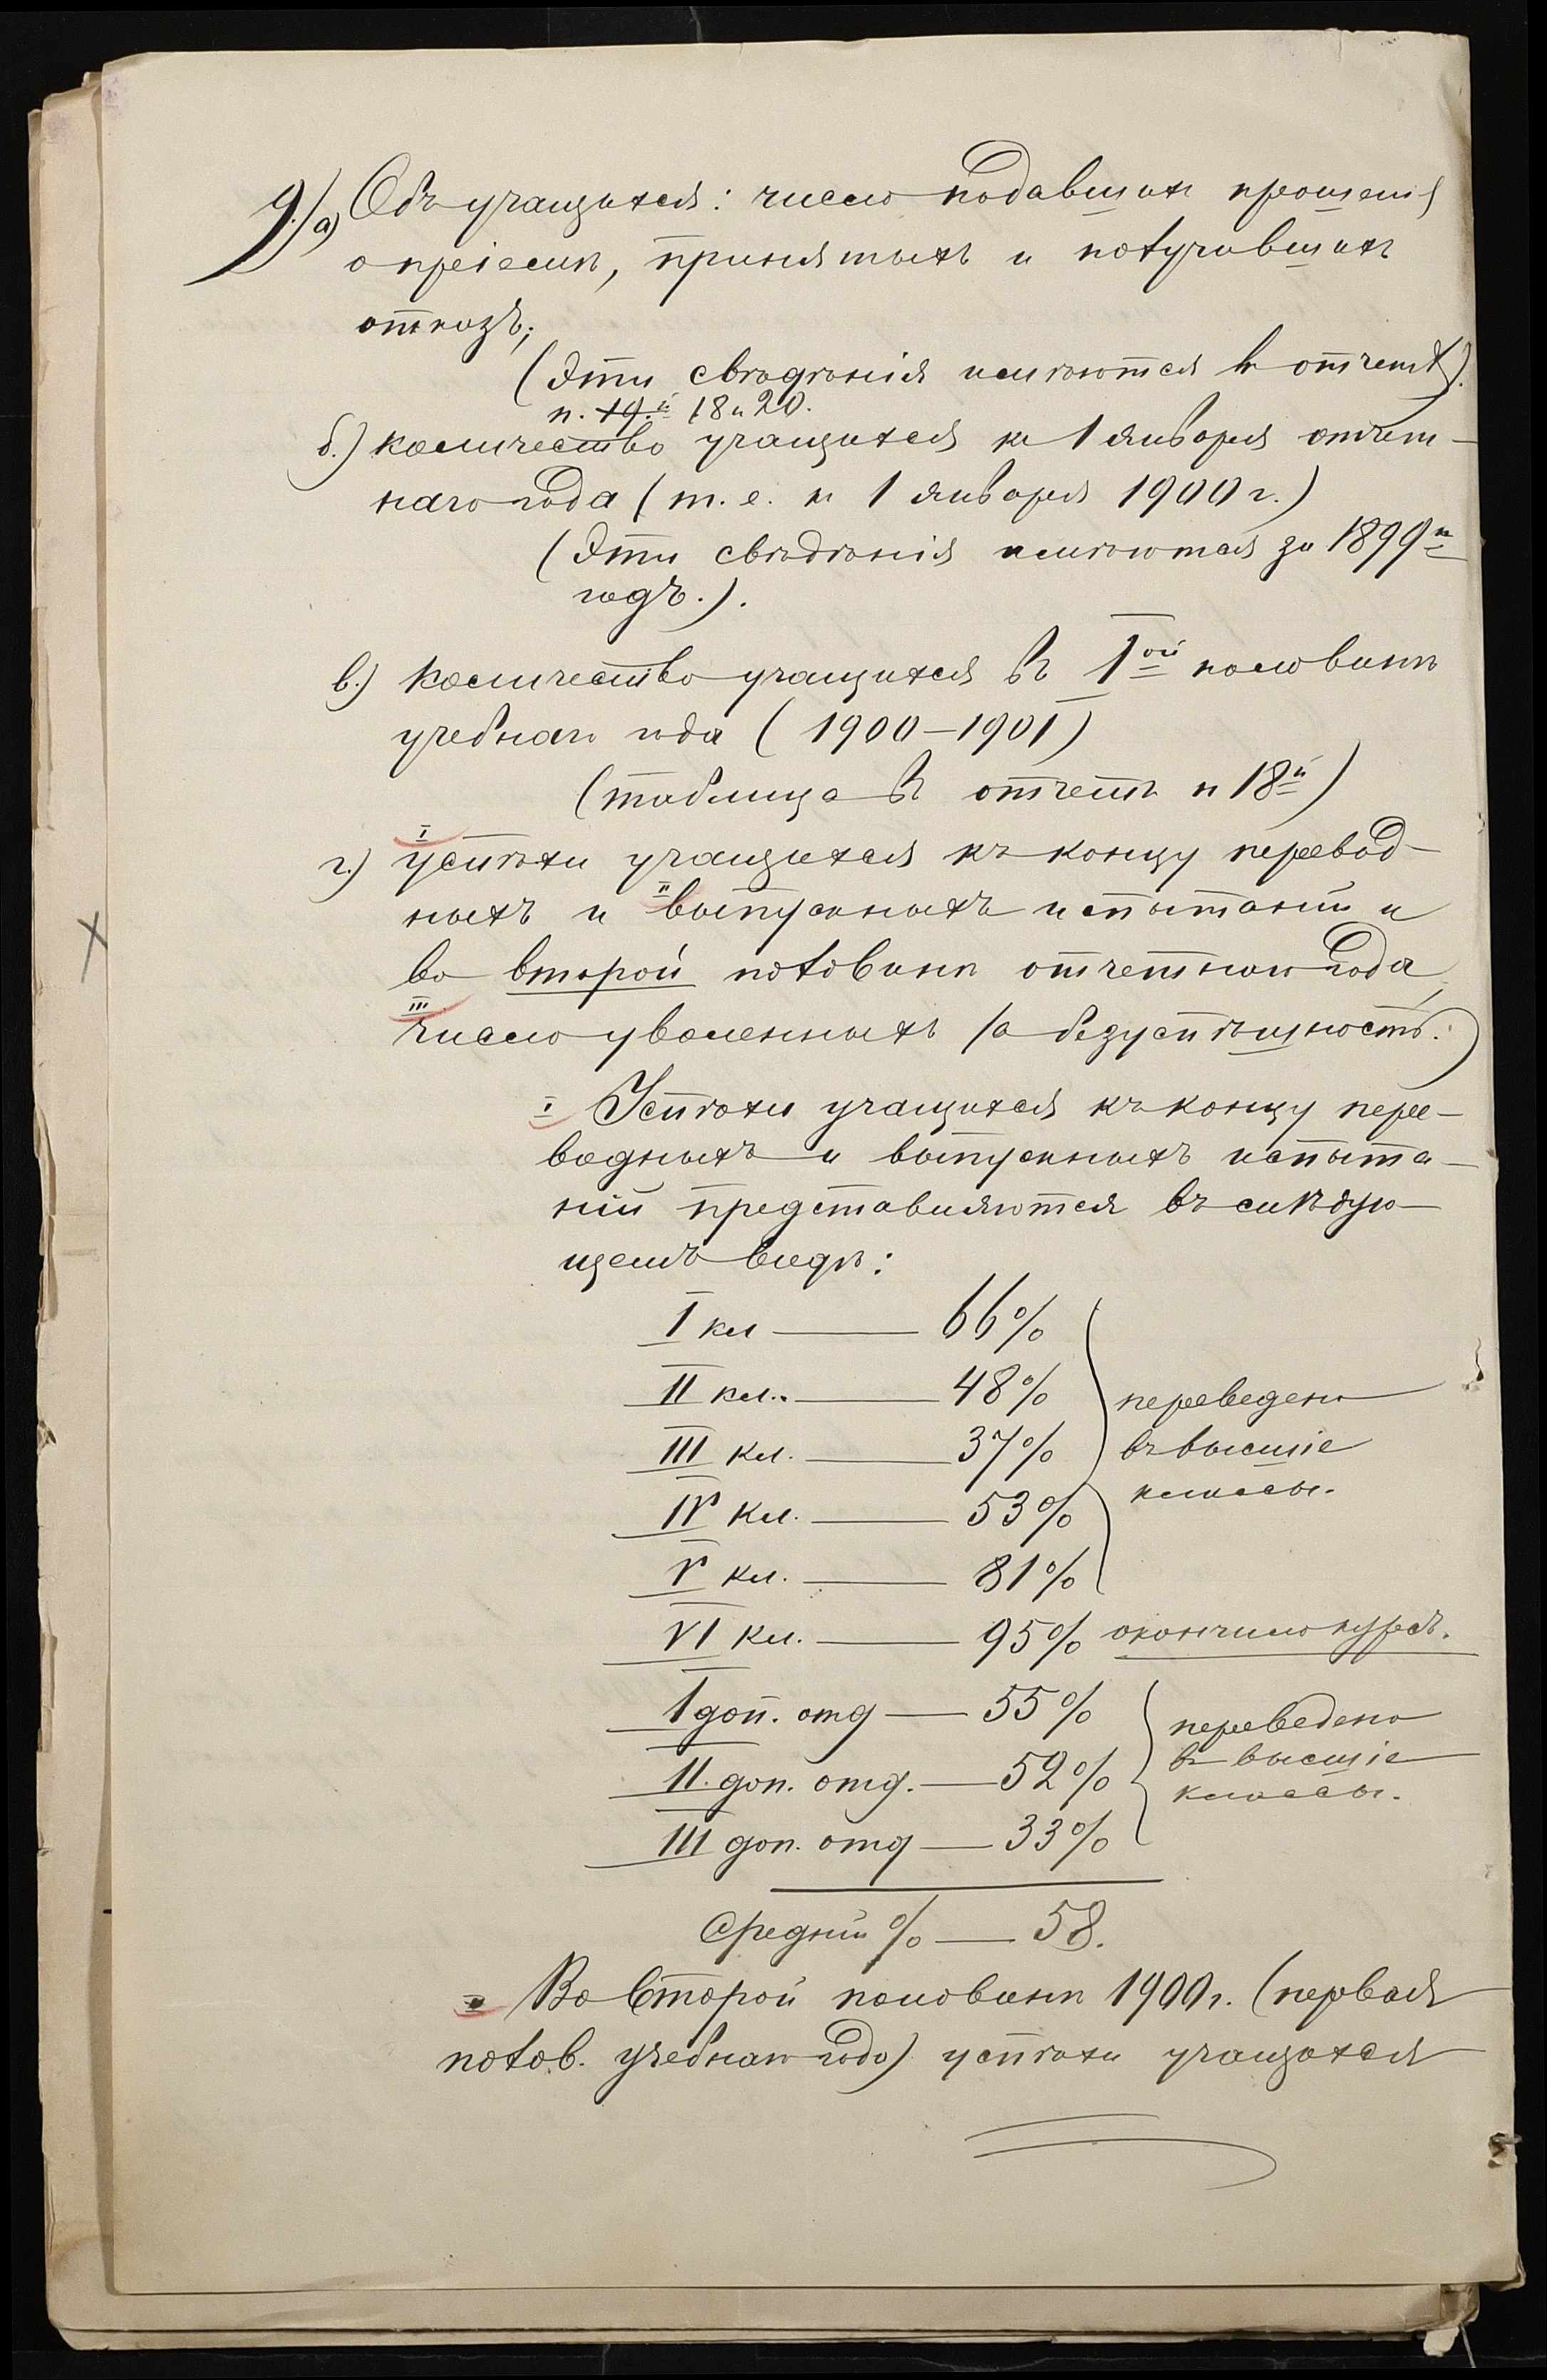 9.) а) Объ учащихся: число подавшихъ прошенія
о пріемѣ, принятыхъ и получившихъ
отказъ;
(Эти свѣдѣнія имѣются въ отчетѣ).
п. 19.й 18 и 20.
б.) количество учащихся къ 1 января отчет-
наго года (т. е. къ 1 января 1900 г.)
(Эти свѣдѣнія имѣются за 1899й
годъ.).
в.) количество учащихся въ Iой половинѣ
учебнаго года (1900–1901)
(таблица въ отчетѣ п 18й)
I
г.) успѣхи учащихся къ концу перевод-
ныхъ и II выпускныхъ испытаній и
во второй половинѣ отчетнаго года,
III
число уволенныхъ за безуспѣшность.
I Успѣхи учащихся къ концу пере-
водныхъ и выпускныхъ испыта-
ній представляются въ слѣдую-
щемъ видѣ:
I кл — 66%
II кл. — 48% переведено
III кл. — 37% въ высшіе
IV кл. — 53% классы.
V кл. — 81%
VI кл. — 95% окончило курсъ.
I доп. отд — 55% переведено
II. доп. отд. — 52% въ высшіе
III доп. отд — 33% классы.
Средній % — 58.
Во второй половинѣ 1900 г. (первая
полов. учебнаго года) успѣхи учащихся